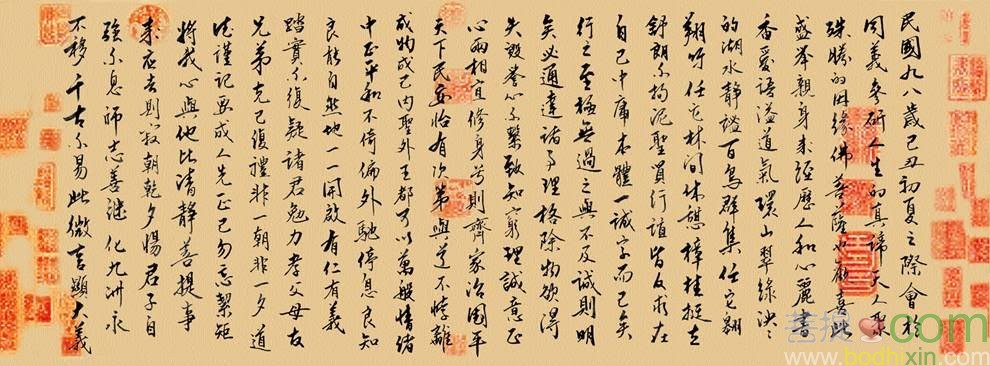 民國九八歲己丑初夏之際會於
同義參研人生的真諦天人聚
殊勝的因緣佛菩薩心歡喜此
盛舉親身來經歷人和心麗書
香愛語溢道氣環山翠綠泱泱
的湖水靜謐百鳥群集任它翱
翔任它林間休憩樟桂挺立
舒朗不拘泥聖賢行誼皆反求在
自己中庸本體一誠字而已矣
行之至極無過之與不及誠則明
矣必通達諸事理格除物欲得
失毀譽心不繫致知窮理誠意正
心兩相宜修身則齊家治國平
天下民安怡有次第與道不悖離
成物成己內聖外王都可以萬般情緒
中正平和不倚偏外馳停息良知
良能自然地一一開啟有仁有義
踏實不復疑諸君勉力孝父母友
兄弟克己復禮非一朝非一夕道
德謹記要成人先正己勿忘絜矩
將我心與他比清靜菩提事
來應去則寂朝乾夕惕君子自
強不息師志善继化九洲永
不移千古不易此微言顯大義
菩提.com
www.bodhixin.com